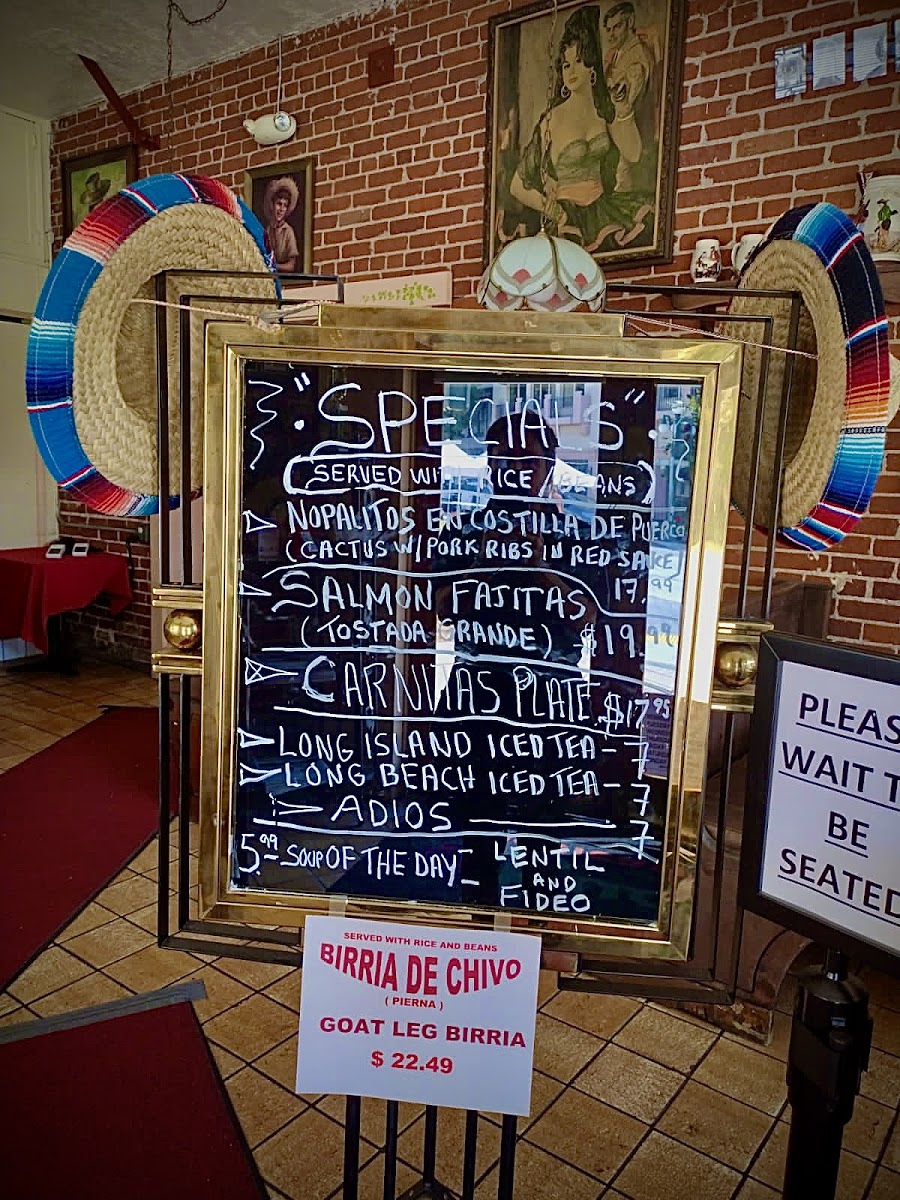 "SPECIALS"
SERVED WITH RICE / BEANS
NOPALITOS EN COSTILLA DE PUERCO
(CACTUS W/ PORK RIBS IN RED SAUCE)
17.99
SALMON FAJITAS
(TOSTADA GRANDE) $19.
CARNITAS PLATE $17.95
LONG ISLAND ICED TEA - 7
LONG BEACH ICED TEA - 7
ADIOS 7
5.99 - SOUP OF THE DAY - LENTIL
AND
FIDEO
SERVED WITH RICE AND BEANS
BIRRIA DE CHIVO
( PIERNA )
GOAT LEG BIRRIA
$ 22.49
PLEAS
WAIT T
BE
SEATED